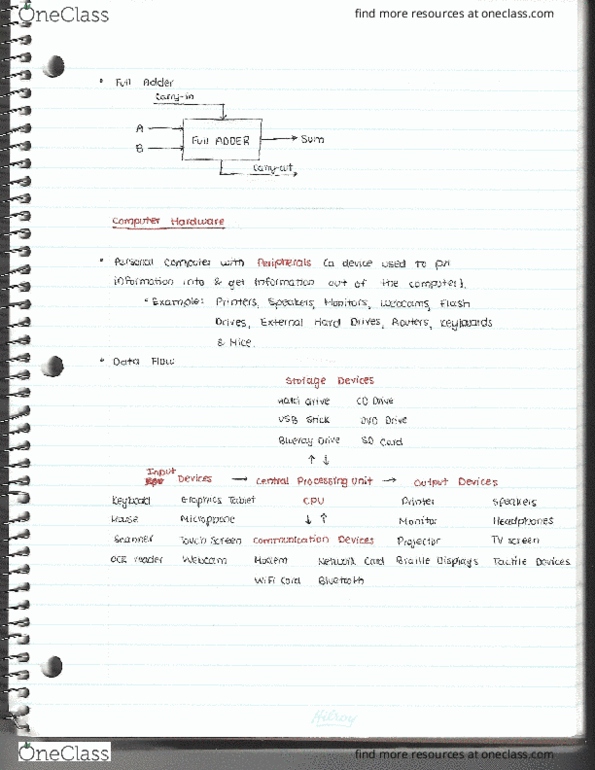 OneClass
find more resources at oneclass.com
• Full Adder
Carry-in
A
B
Full ADDER
Sum
Carry-out
Computer Hardware
• Personal Computer with Peripherals (a device used to put
information into & get information out of the computer).
• Example: Printers, Speakers, Monitors, Webcams, Flash
Drives, External Hard Drives, Routers, Keyboards
& Mice.
• Data Flow
Storage Devices
Hard drive CD Drive
USB Stick DVD Drive
Blueray Drive SD Card
↑ ↓
Input Devices → Central Processing Unit → Output Devices
Keyboard Graphics Tablet CPU Printer Speakers
Mouse Microphone ↓ ↑ Monitor Headphones
Scanner Touch Screen Communication Devices Projector TV screen
OCR reader Webcam Modem Network Card Braille Displays Tactile Devices
WiFi Card Bluetooth
Hilroy
OneClass
find more resources at oneclass.com